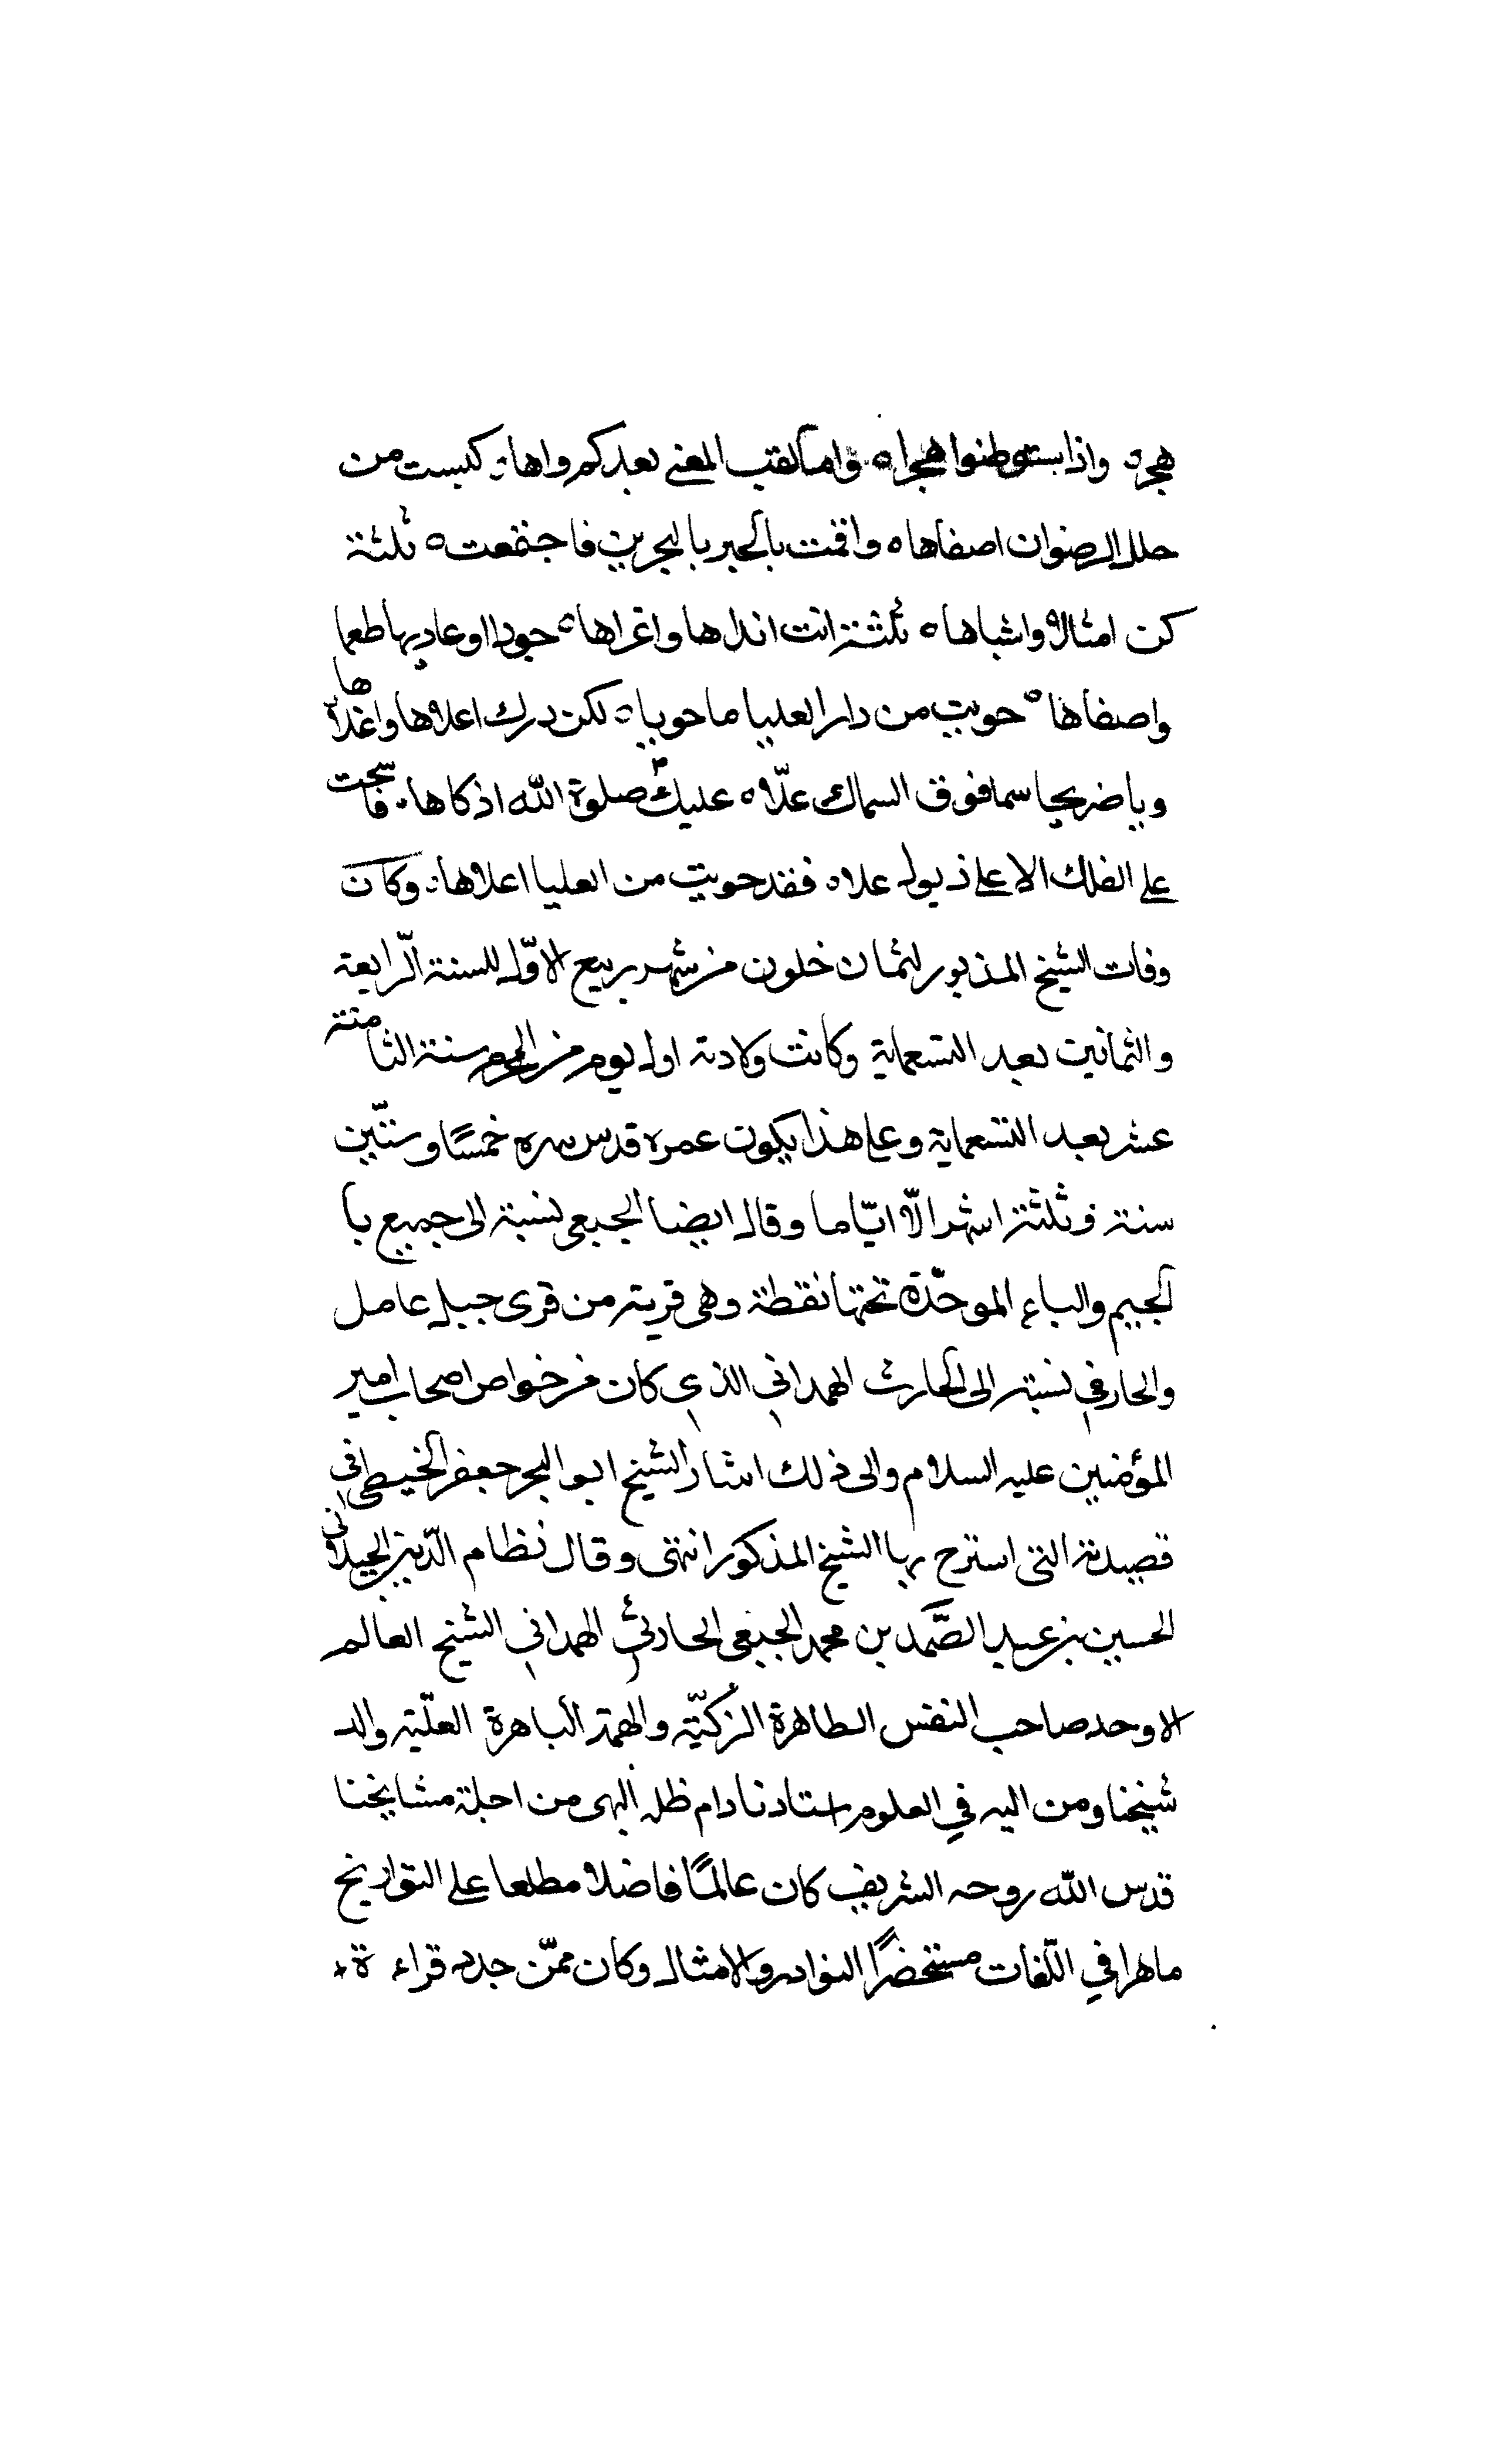 هجر ه واذا ستوطنوا هجرا ه واها لقب المغنى بعدكم واها ه كسبت من
حلل الرضوان اصفاها ه واقمت بالبحر بالبحرين فاجتمعت ه ثلثة
كن امثالا واشباها ه ثلثة انت انداها واغزاها ه جودا وعاد بها طعما
واصفاها ه حويت من دار العليا ما حويا ه لكن درك اعلاها واغلاها
ويا ضريحا سما فوق السماك علّا ه عليك صلوة الله اذكاها ه فاسحت
على الفلك الاعلى ذيول علا ه فقد حويت من العليا اعلاها ه وكان
وفات الشيخ المذبور لثمان خلون من شهر ربيع الاوّل للسنة الرّابعة
والثمانين بعد التسعماية وكانت ولادته اول يوم من المحرم سنة الثامنة
عشر بعد التسعماية وعلى هذا يكون عمره قدس سره خمسًا وستّين
سنة وثلثة اشهر الّا ايّاما وقال ايضا الجبعى نسبة الى جبيع با
الجيم والباء الموحّدة تحتها نقطة وهى قرية من قرى جبل عامل
والحارثي نسبة الى الحارث الهمداني الذي كان من خواص اصحاب امير
المؤمنين عليه السلام والى ذلك اشار الشيخ ابو البحر جعفر الخيطى في
قصيدته التى استرح بها الشيخ المذكور انتهى وقال نظام الدّين الجيلانى
الحسين بن عبد الصَّمد بن محمد الجبعى الحارثي الهمداني الشيخ العالم
الاوحد صاحب النفس الطاهرة الزكيّة والهمة الباهرة العلّية والد
شيخنا ومن اليه في العلوم استادنا دام ظله البهى من اجلة مشايخنا
قدس الله روحه الشريف كان عالمًا فاضلا مطلعا على التواريخ
ماهرا في اللّغات مستحضرًا النوادر والامثال وكان ممّن جدد قراءة